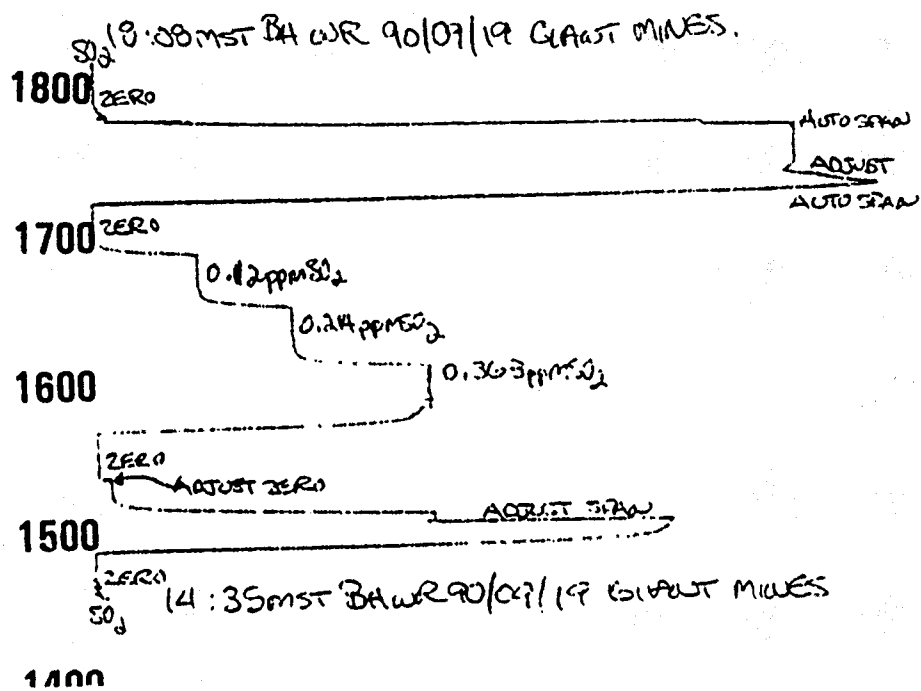 SO2 18:08MST BH WR 90/07/19 GIANT MINES.
1800
ZERO
AUTO SPAN
ADJUST
AUTO SPAN
1700
ZERO
0.12ppmSO2
0.214ppmSO2
0.363ppmSO2
1600
ZERO
ADJUST ZERO
ADJUST SPAN
1500
ZERO
SO2
14:35MST BH WR 90/07/19 GIANT MINES
1400